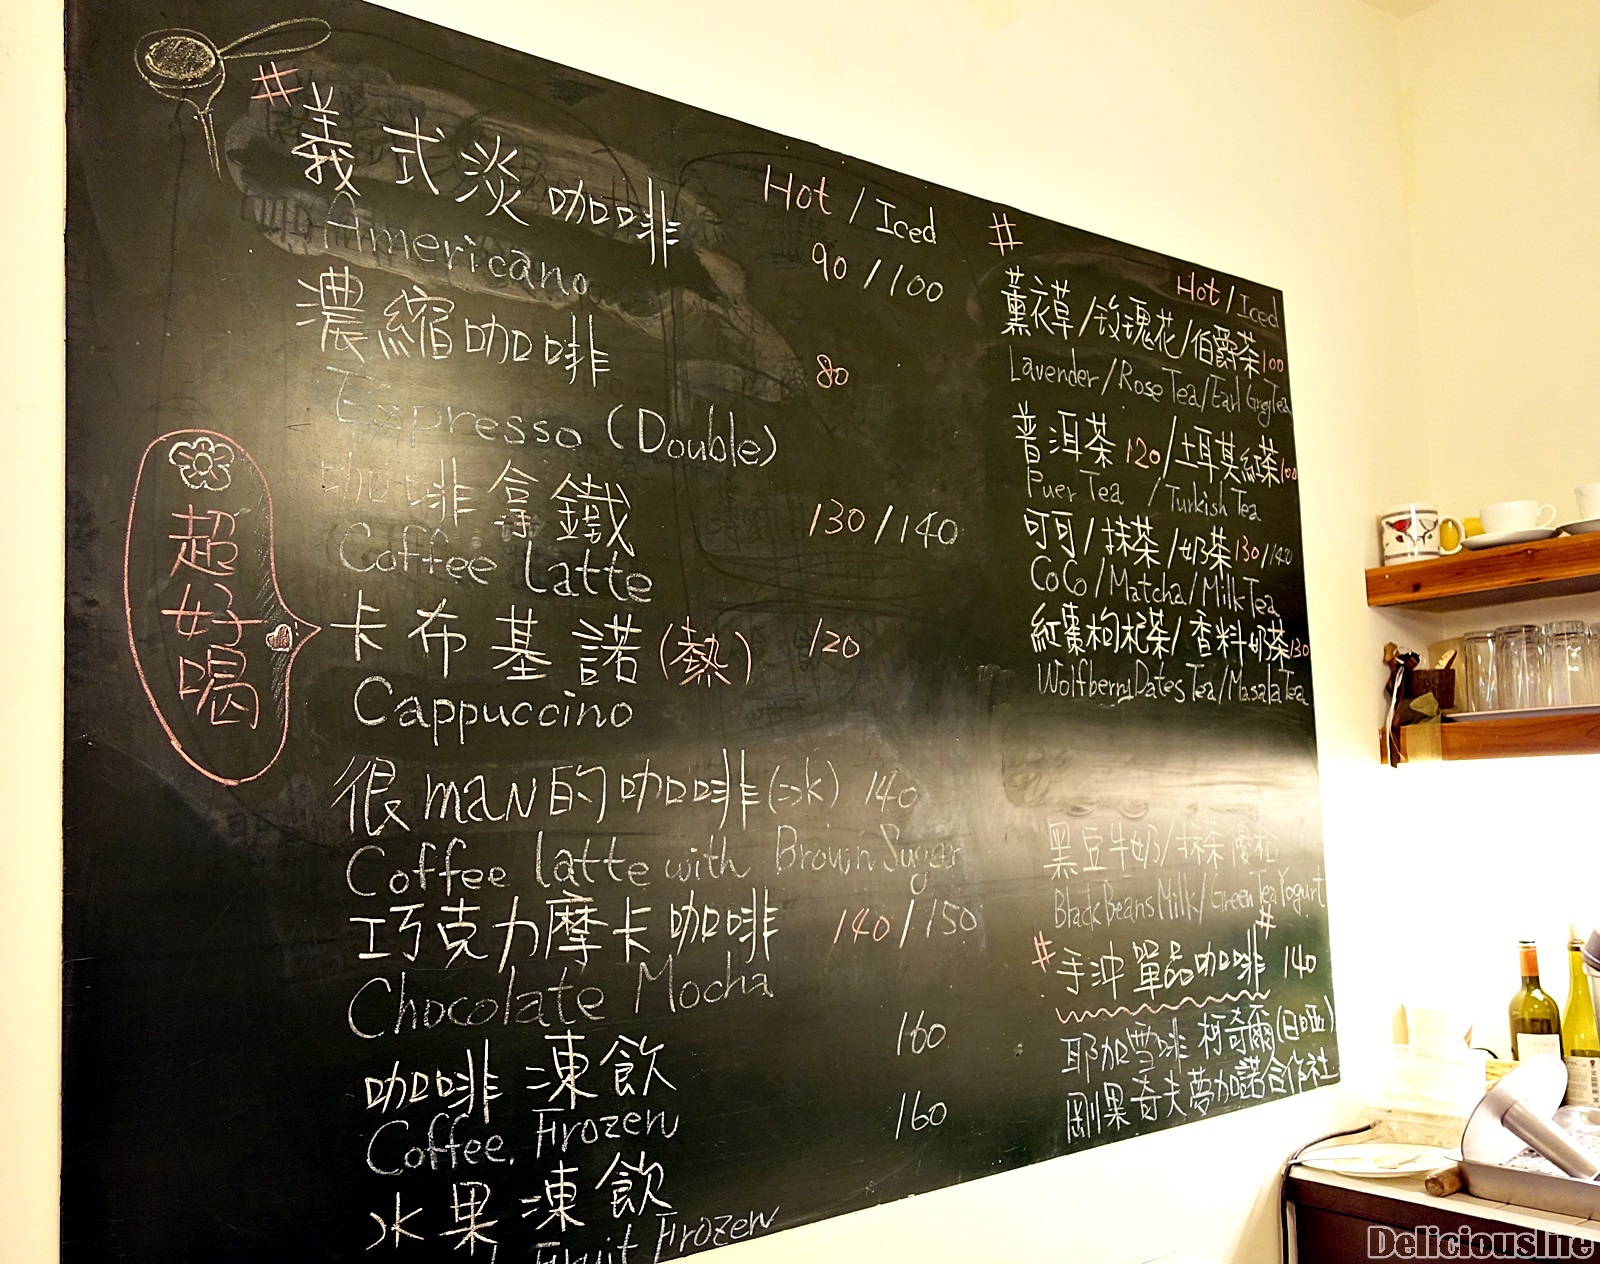 # 義式淡咖啡 Hot / Iced
Americano 90 / 100
濃縮咖啡 80
Espresso (Double)
咖啡拿鐵 130 / 140
Coffee Latte
卡布基諾(熱) 120
Cappuccino
很man的咖啡(冰) 140
Coffee latte with Brown Suger
巧克力摩卡咖啡 140 / 150
Chocolate Mocha
咖啡凍飲 160
Coffee. Frozen
水果凍飲 160
Fruit Frozen
超好喝
#
Hot / Iced
薰衣草/玫瑰花/伯爵茶 100
Lavender/Rose Tea/Earl Grey Tea
普洱茶 120/土耳其紅茶 100
Puer Tea / Turkish Tea
可可/抹茶/奶茶 130/140
CoCo/Matcha/Milk Tea
紅棗枸杞茶/香料奶茶 130
Wolfberry Dates Tea/Masala Tea
黑豆牛奶/抹茶優格
Black Beans Milk/Green Tea Yogurt
# 手沖單品咖啡 # 140
耶加雪啡 柯奇爾(日晒)
剛果奇夫夢加諾合作社
Deliciouslife